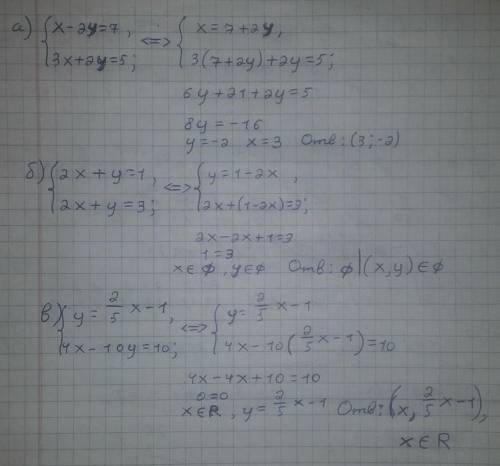 а) { x-2y=7, <=> { x=7+2y,
3x+2y=5; 3(7+2y)+2y=5;
6y+21+2y=5
8y=-16
y=-2 x=3 Отв: (3;-2)
б) { 2x+y=1, <=> { y=1-2x ,
2x+y=3; 2x+(1-2x)=3;
2x-2x+1=3
1=3
x∈∅, y∈∅ Отв: ∅|(x,y)∈∅
в) { y=2/5 x-1, <=> { y=2/5 x-1
4x-10y=10; 4x-10(2/5 x-1)=10
4x-4x+10=10
0=0
x∈R, y=2/5 x-1 Отв: (x, 2/5 x-1),
x∈R